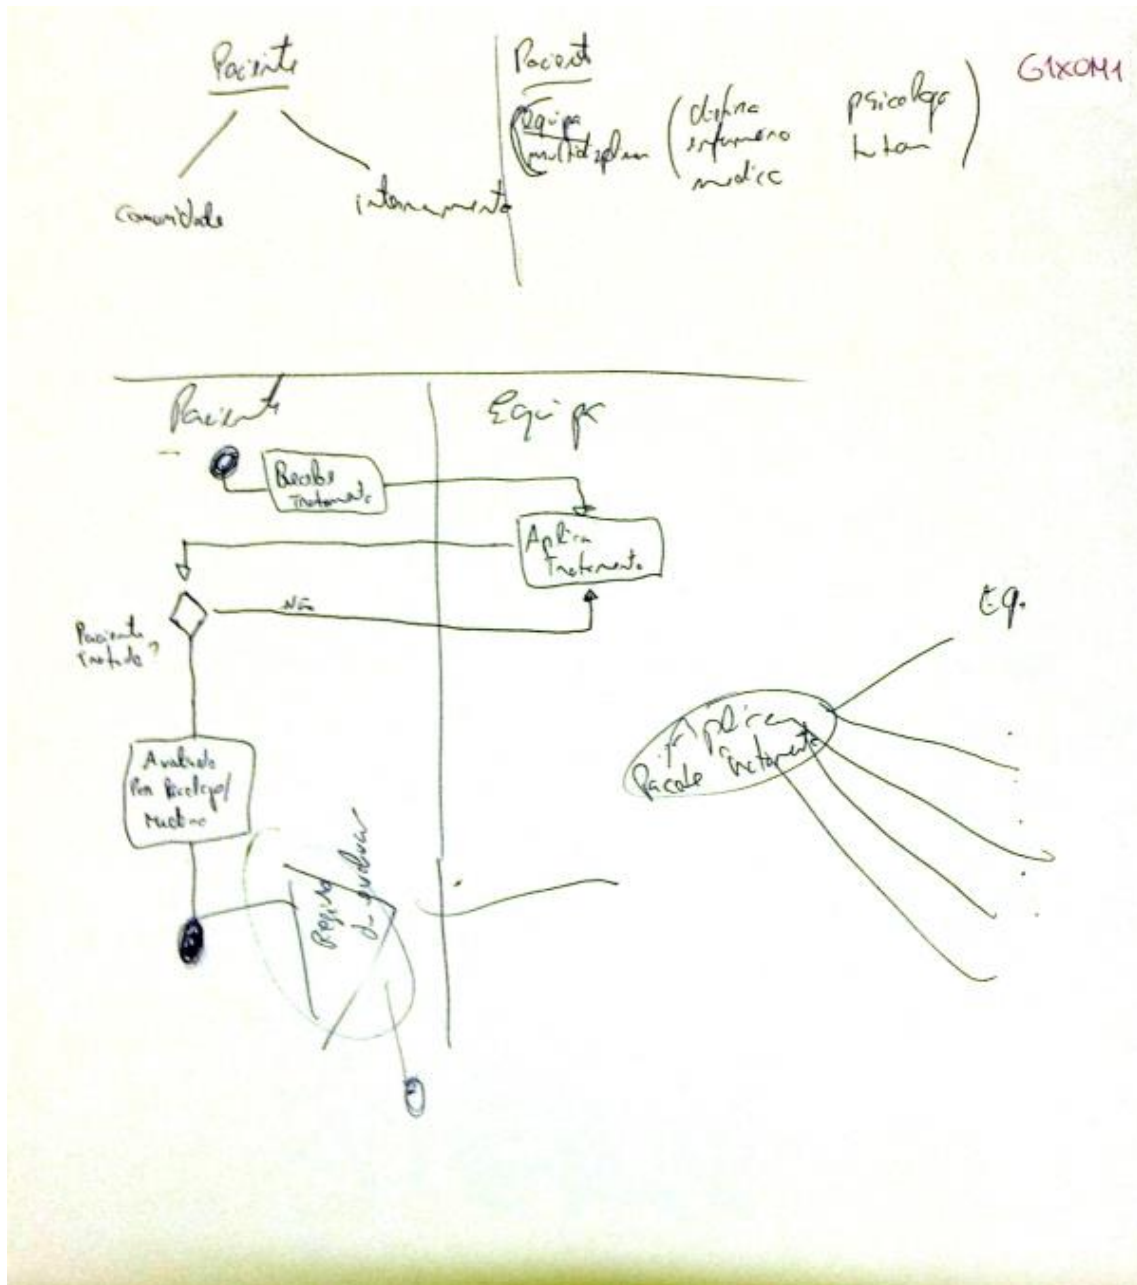 Paciente
comunidade
internamento
Paciente
Equipa
(
enfermeiro
medico
psicologo
)
G1XOM1
Paciente
Equipa
Recebe
Tratamento
Aplica
Tratamento
Não
Paciente
Tratado?
Avaliado
Por Psicologo/
Medico
Registo
Eq.
Aplicar
Pacote tratamento